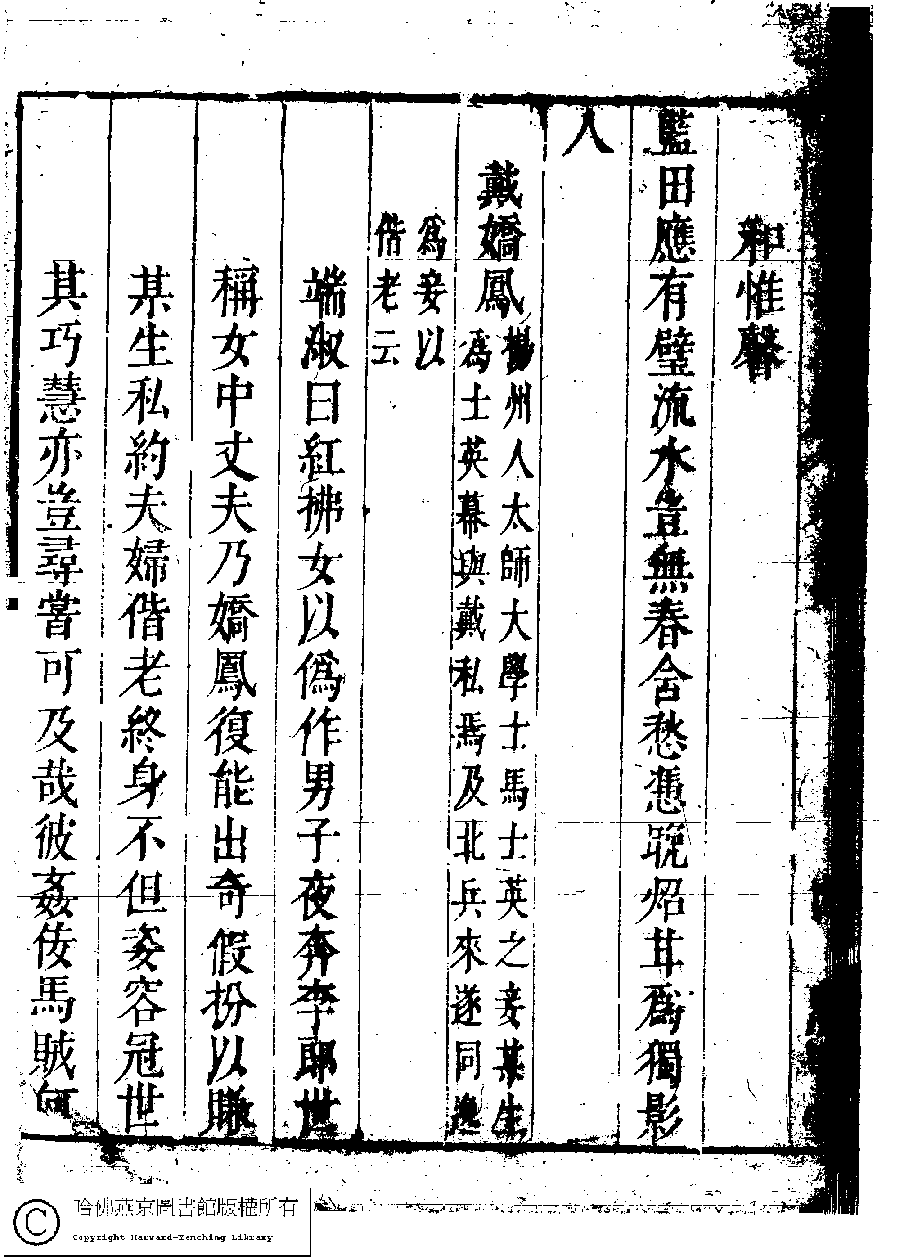 和惟馨
藍田應有璧流水豈無春舍愁憑晚炤甘爲獨影
人
戴嬌鳳
揚州人太師大學士馬士英之妾某生
爲士英幕與戴私焉及北兵來遂同逸
爲妾以
偕老云
端淑曰紅拂女以僞作男子夜奔李郎世
稱女中丈夫乃嬌鳳復能出奇假扮以賺
某生私約夫婦偕老終身不但姿容冠世
其巧慧亦豈尋甞可及哉彼姦侫馬賊何
哈佛燕京圖書館版權所有
Copyright Harvard-Yenching Library